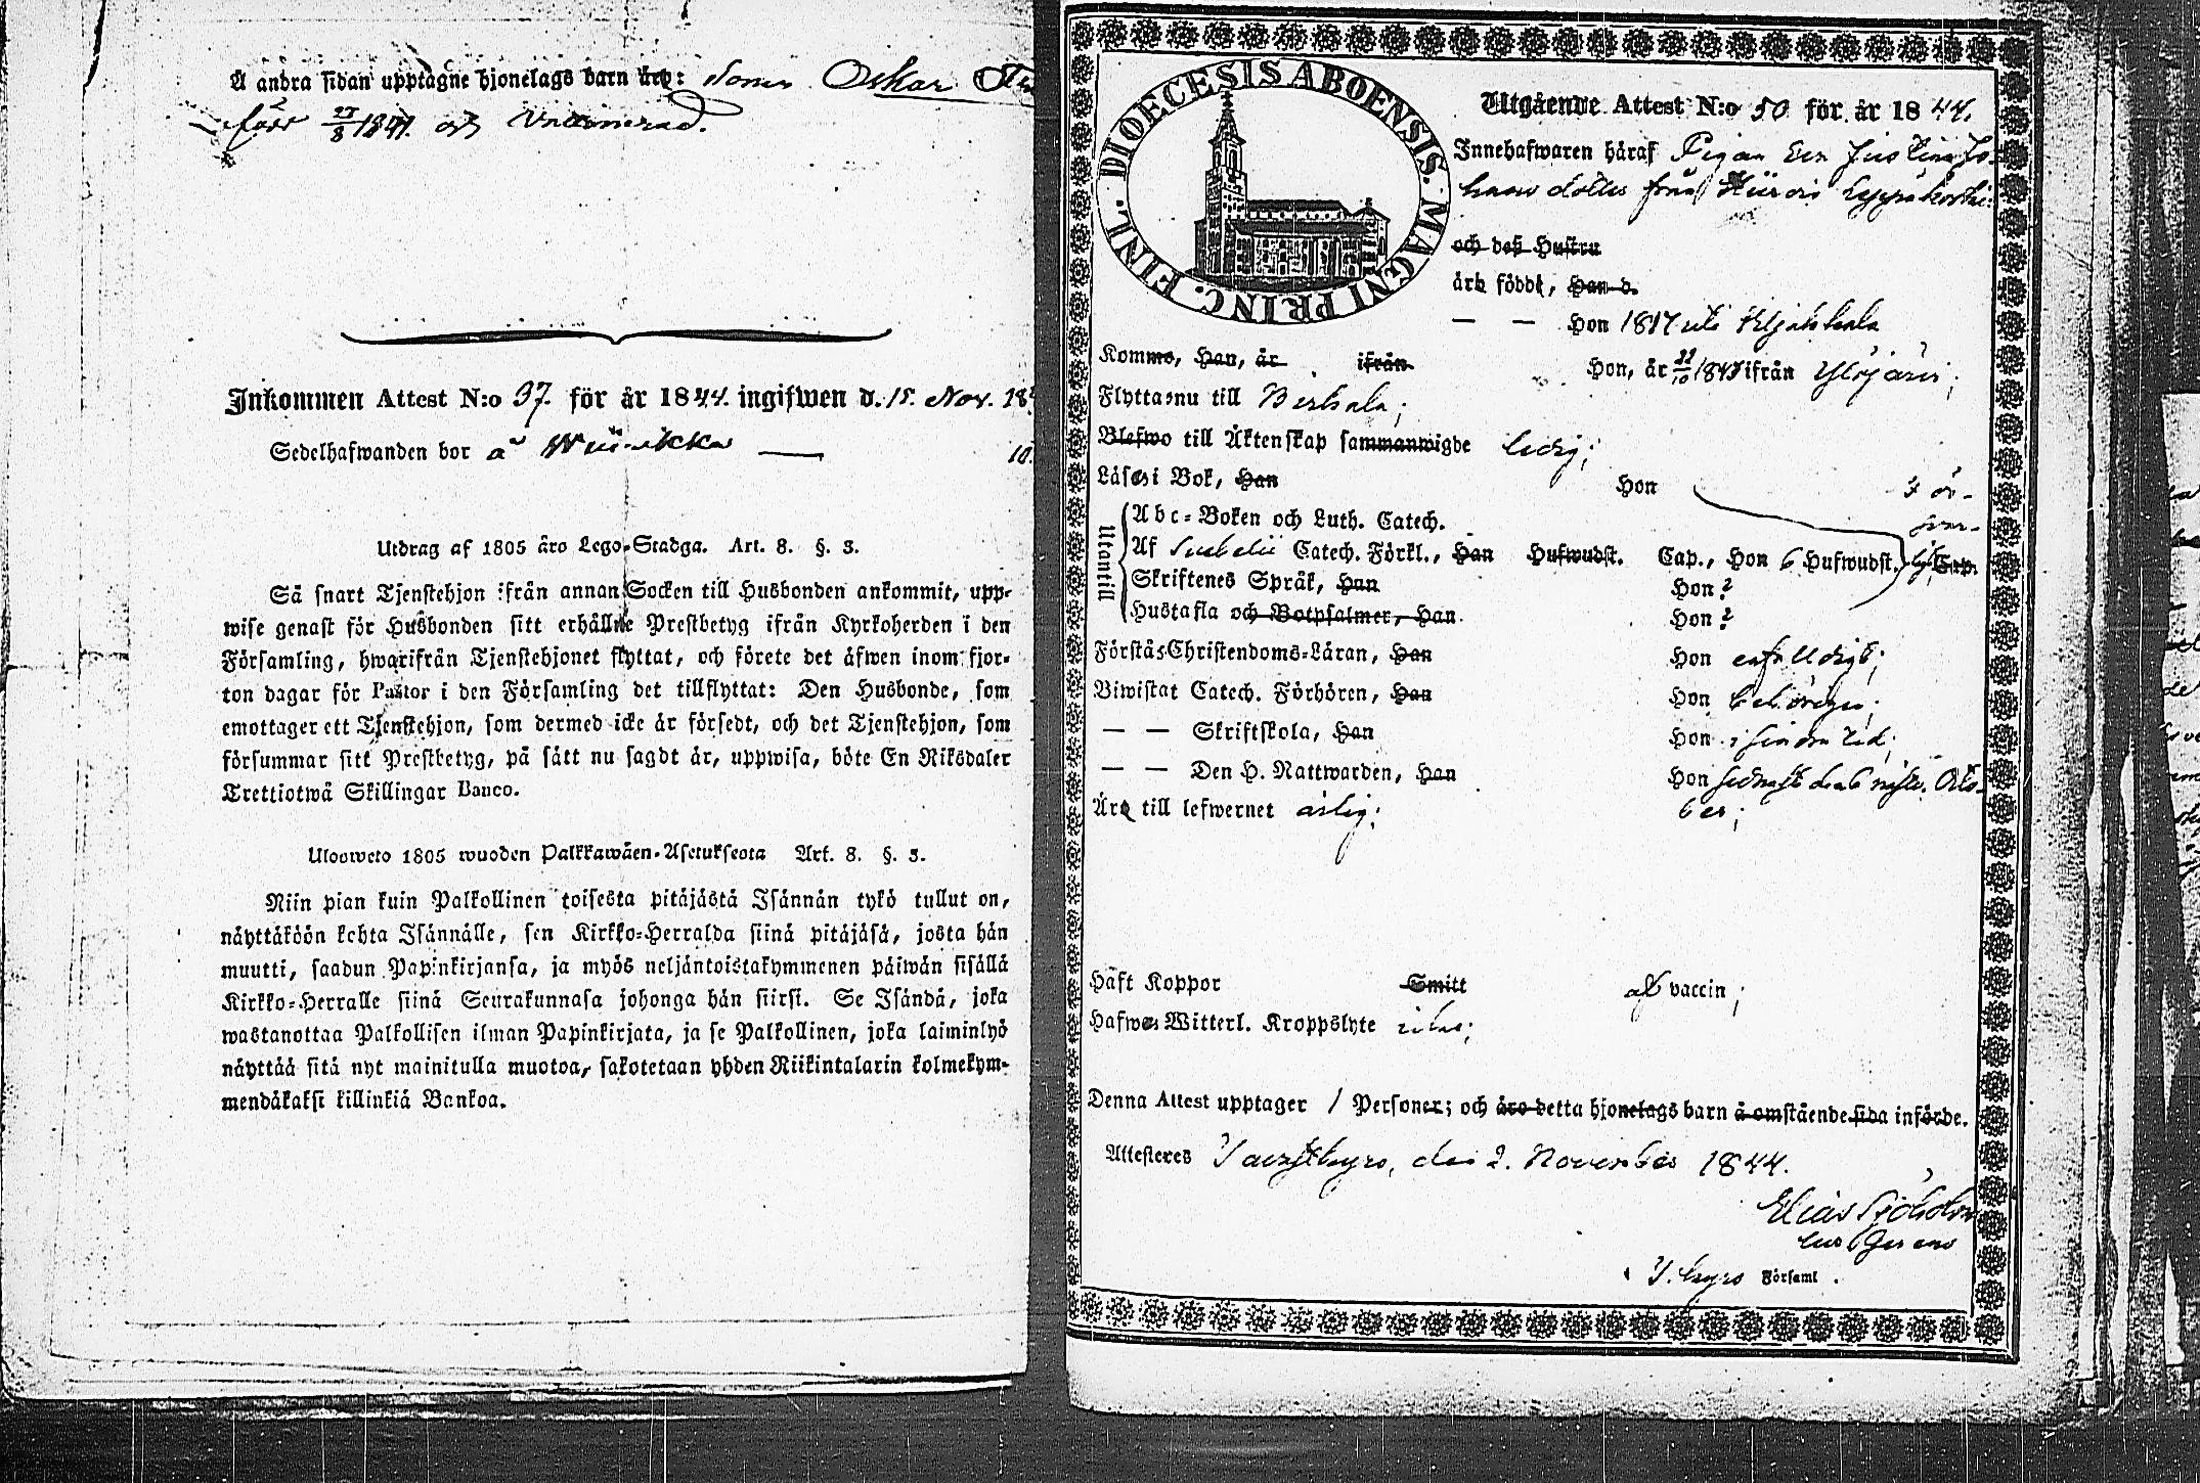 Å andra sidan upptagne hjonelags barn äro: sonen Oskar
född 27/8 1841. och Vaccinerad.
Inkommen Attest N:o 97. för år 1844. ingifwen d. 15. Nov. 18
Sedelhafwanden bor å
10.
Utdrag af 1805 års Lego-Stadga. Art. 8. §. 3.
Så snart Tjenstehjon ifrån annan Socken till Husbonden ankommit, upp-
wise genast för Husbonden sitt erhållne Prestbetyg ifrån Kyrkoherden i den
Församling, hwarifrån Tjenstehjonet flyttat, och förete det äfwen inom fjor-
ton dagar för Pastor i den Församling det tillflyttat: Den Husbonde, som
emottager ett Tjenstehjon, som dermed icke är försedt, och det Tjenstehjon, som
försummar sitt Prestbetyg, på sätt nu sagdt är, uppwisa, böte En Riksdaler
Trettiotwå Skillingar Banco.
Ulosweto 1805 wuoden Palkkawäen-Asetuksesta Art. 8. §. 3.
Niin pian kuin Palkollinen toisesta pitäjästä Isännän tykö tullut on,
näyttäköön kohta Isännälle, sen Kirkko-Herralda siinä pitäjäsä, josta hän
muutti, saadun Papinkirjansa, ja myös neljäntoistakymmenen päiwän sisällä
Kirkko-Herralle siinä Seurakunnasa johonga hän siirsi. Se Isändä, joka
wastanottaa Palkollisen ilman Papinkirjata, ja se Palkollinen, joka laiminlyö
näyttää sitä nyt mainitulla muotoa, sakotetaan yhden Riikintalarin kolmekym-
mendäkaksi killinkiä Bankoa.
DIOECESIS ABOENSIS. MAGNI PRINC. FINL.
Utgående Attest N:o 50 för år 1844.
Innehafwaren häraf Pigan Eva Justina Jo-
hans dotter från Leppäkoski
och deß Hustru
äro födde, Han d.
— — Hon 1817 uti
Kommo, Han, år ifrån Hon, år 1843 ifrån Ylöjärvi;
Flytta nu till Birkala;
Blefwo till Äktenskap sammanwigde ledig;
Läsa i Bok, Han Hon
Utantill
Abc-Boken och Luth. Catech.
Af Svebelii Catech. Förkl., Han Hufwudst. Cap., Hon 6 Hufwudst. Cap.
Skriftenes Språk, Han Hon
Hustafla och Botpsalmer, Han Hon
Förstå Christendoms-Läran, Han Hon enfalldigt;
Biwistat Catech. Förhören, Han Hon behörigen;
— — Skriftskola, Han Hon i sinom tid;
— — Den H. Nattwarden, Han Hon sednast den 6 nästl. Octo-
ber;
Äro till lefwernet ärlig;
Haft Koppor Smitt af vaccin;
Hafwa Witterl. Kroppslyte icke;
Denna Attest upptager 1 Personer; och äro detta hjonelags barn å omstående sida införde.
Attesteres Tavastkyro, den 2. November 1844.
Elias Sjöholm
T. kyro Församl.